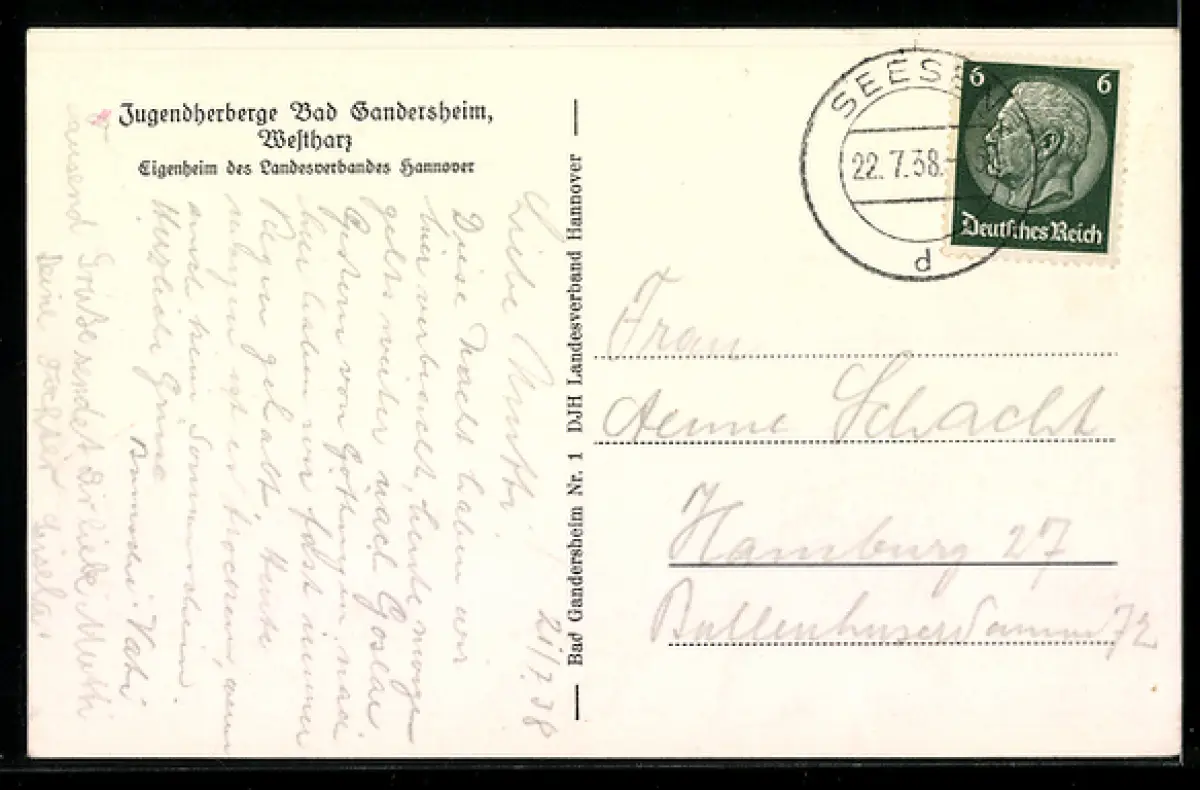 Jugendherberge Bad Gandersheim,
Westharz
Eigenheim des Landesverbandes Hannover
21/7.38
Liebe Mutti!
Diese Nacht haben wir
hier verbracht, heute
geht's weiter nach Goslar.
Gestern von Göttingen nach
hier haben wir fast immer
Regen gehabt, Heute
ist es trocken, wenn
auch kein Sonnenschein.
Herzliche Grüsse
Vati
Tausend Grüße sendet dir liebe Mutti
Deine Tochter Gisela
Bad Gandersheim Nr. 1 DJH Landesverband Hannover
SEESEN
22.7.38.
d
6 6
Deutsches Reich
Frau
Aenne Schacht
Hamburg 27
Bullenhuserdamm 72